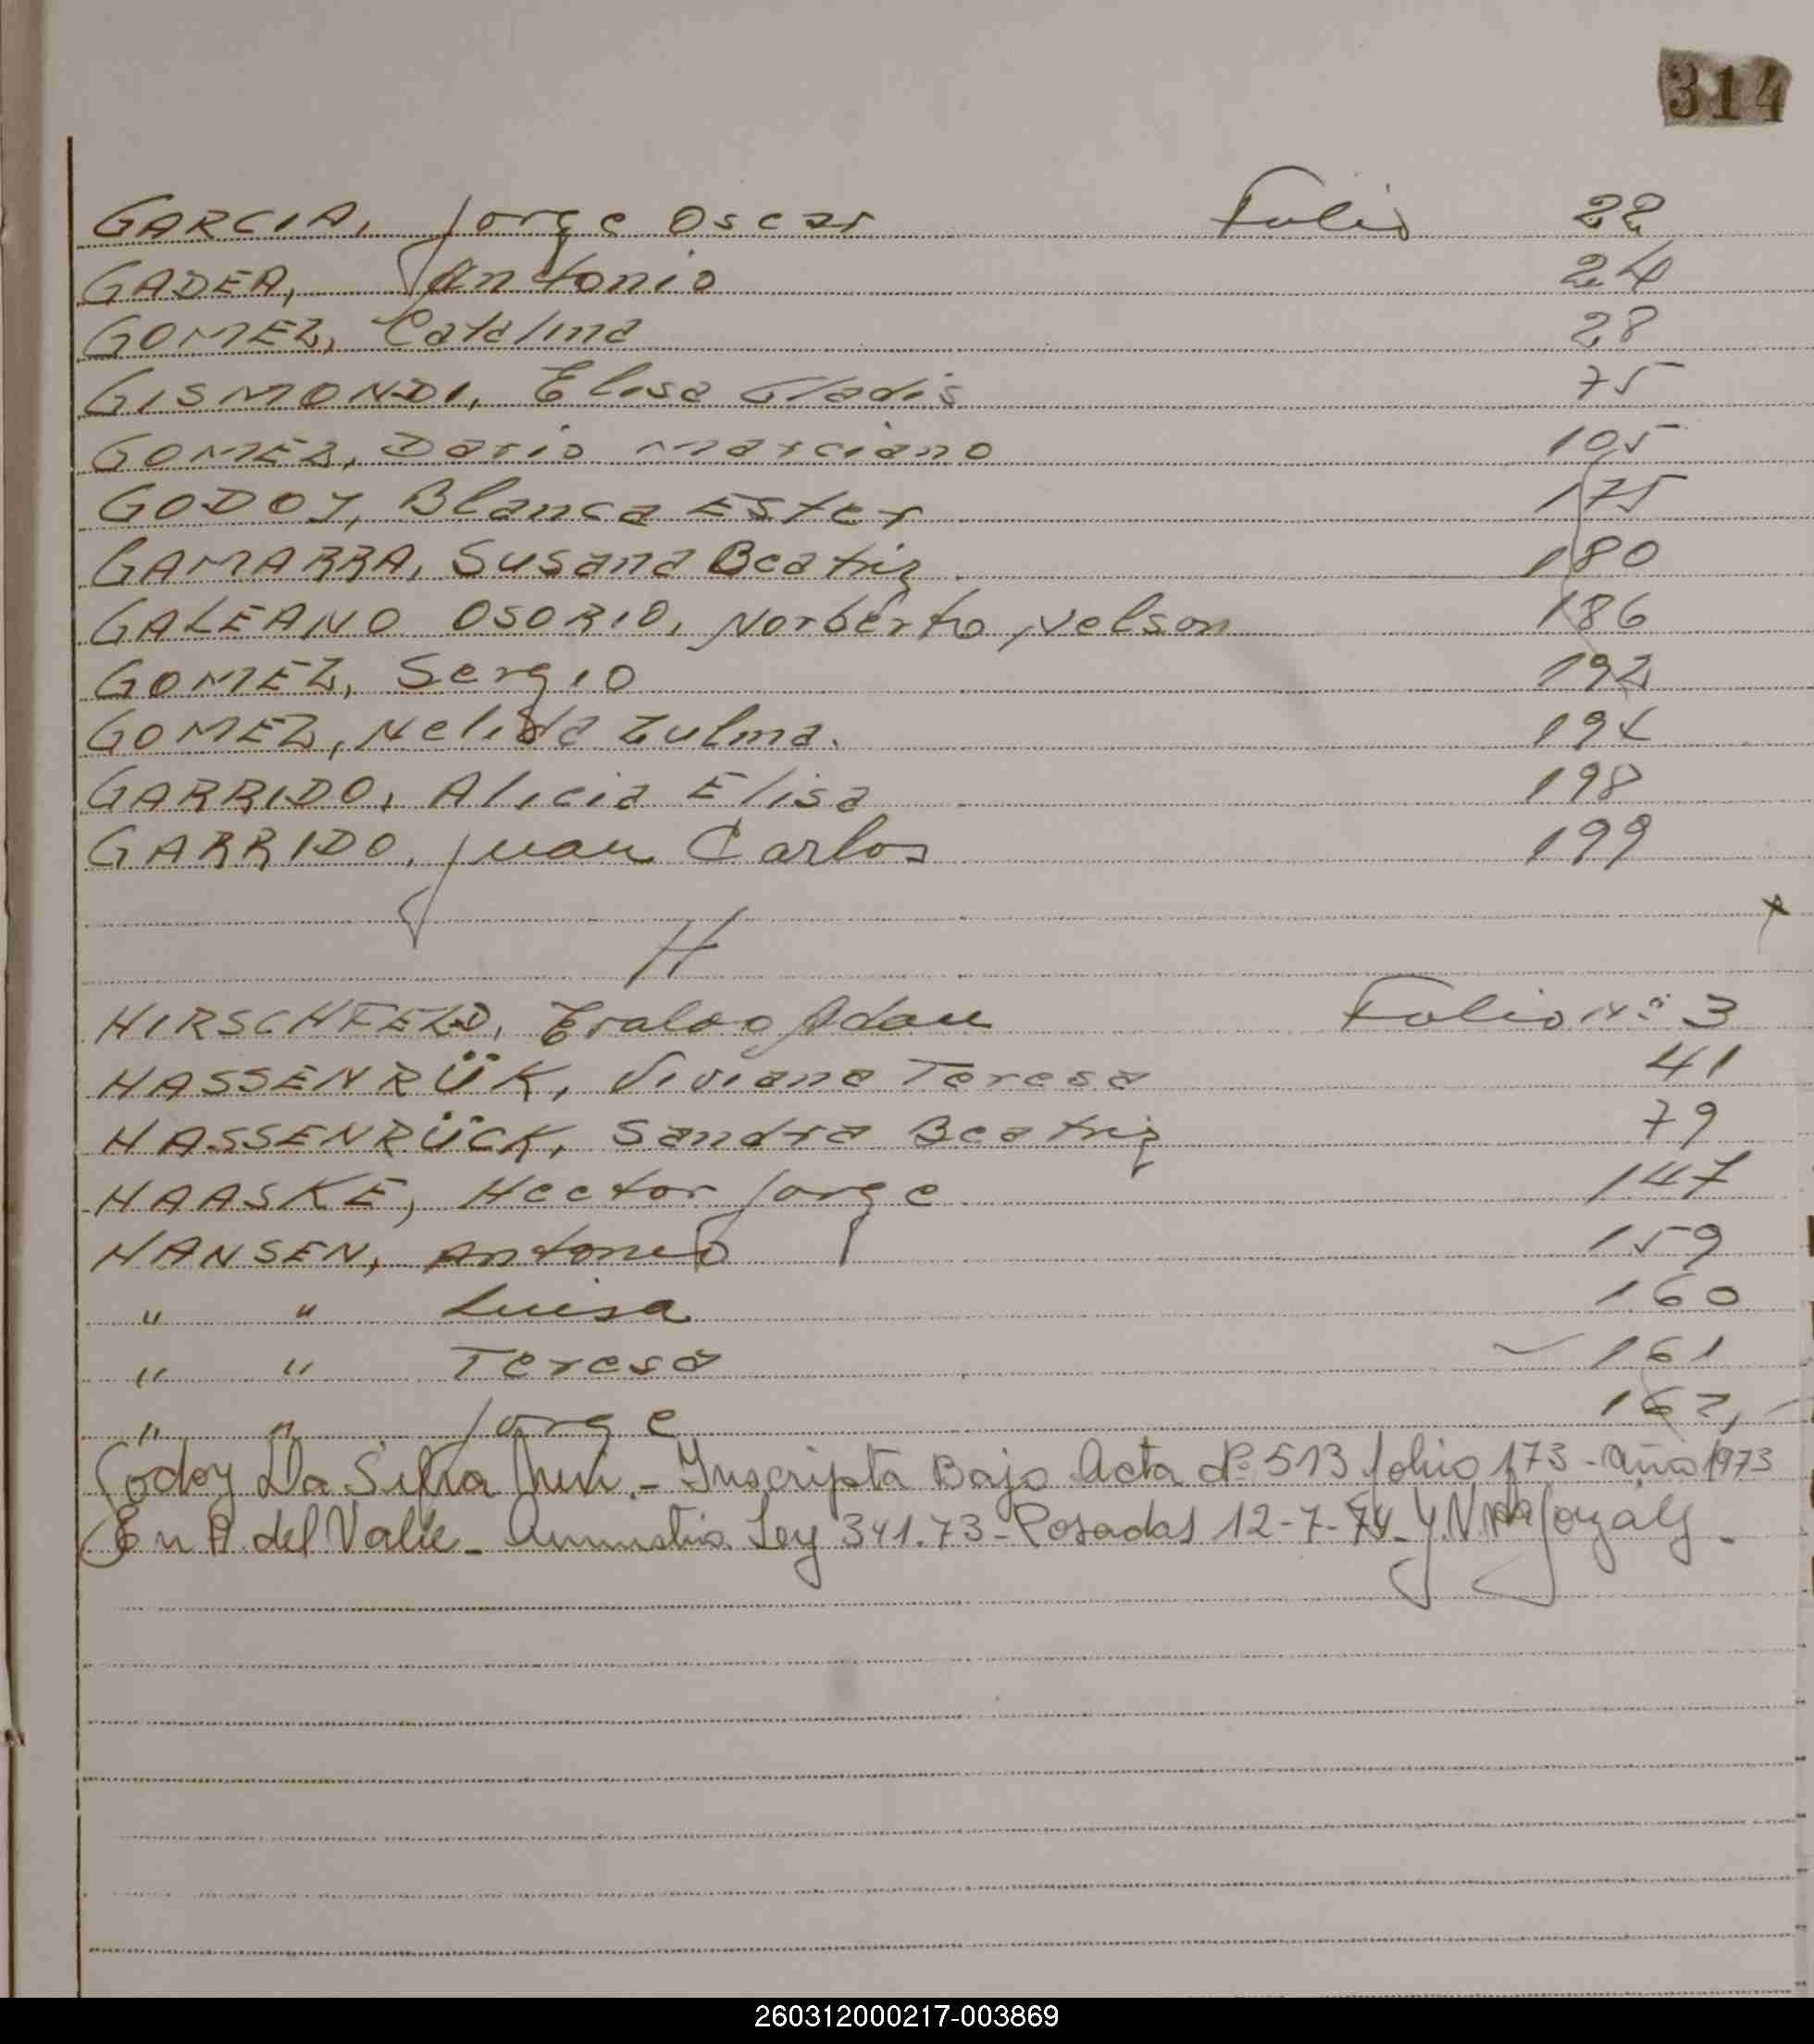 314
GARCIA, Jorge Oscar Folio 22
GADEA, Antonio 24
GOMEZ, Catalina 28
GISMONDI, Elisa Gladis 75
GOMEZ, Dario Marciano 105
GODOY, Blanca Ester 175
GAMARRA, Susana Beatriz 180
GALEANO OSORIO, Norberto Nelson 186
GOMEZ, Sergio 192
GOMEZ, Nelida Zulma. 194
GARRIDO, Alicia Elisa 198
GARRIDO, Juan Carlos 199
H
HIRSCHFELD, Adan Folio Nº 3
HASSENRÜK, Viviana Teresa 41
HASSENRÜCK, Sandra Beatriz 79
HAASKE, Hector Jorge 147
HANSEN, Antonio 159
" " Luisa 160
" " Teresa 161
" " Jorge 162
Godoy Da Silva .- Inscripta Bajo Acta Nº 513 folio 173 - año 1973
En A. del Valle - Amnistia Ley 341.73 - Posadas 12-7-74
260312000217-003869